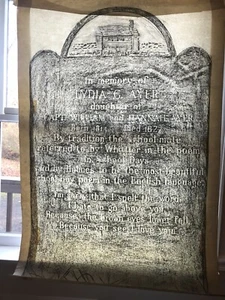 In memory of
LYDIA G. AYER
daughter of
CAPT. WILLIAM and HANNAH AYER
By tradition the school mate
referred to by Whittier in the poem
In School Days
and by Holmes to be the most beautiful
school boy poem in the English language.
I'm sorry that I spelt the word
I hate to go above you
Because the brown eyes lower fell
Because you see I love you